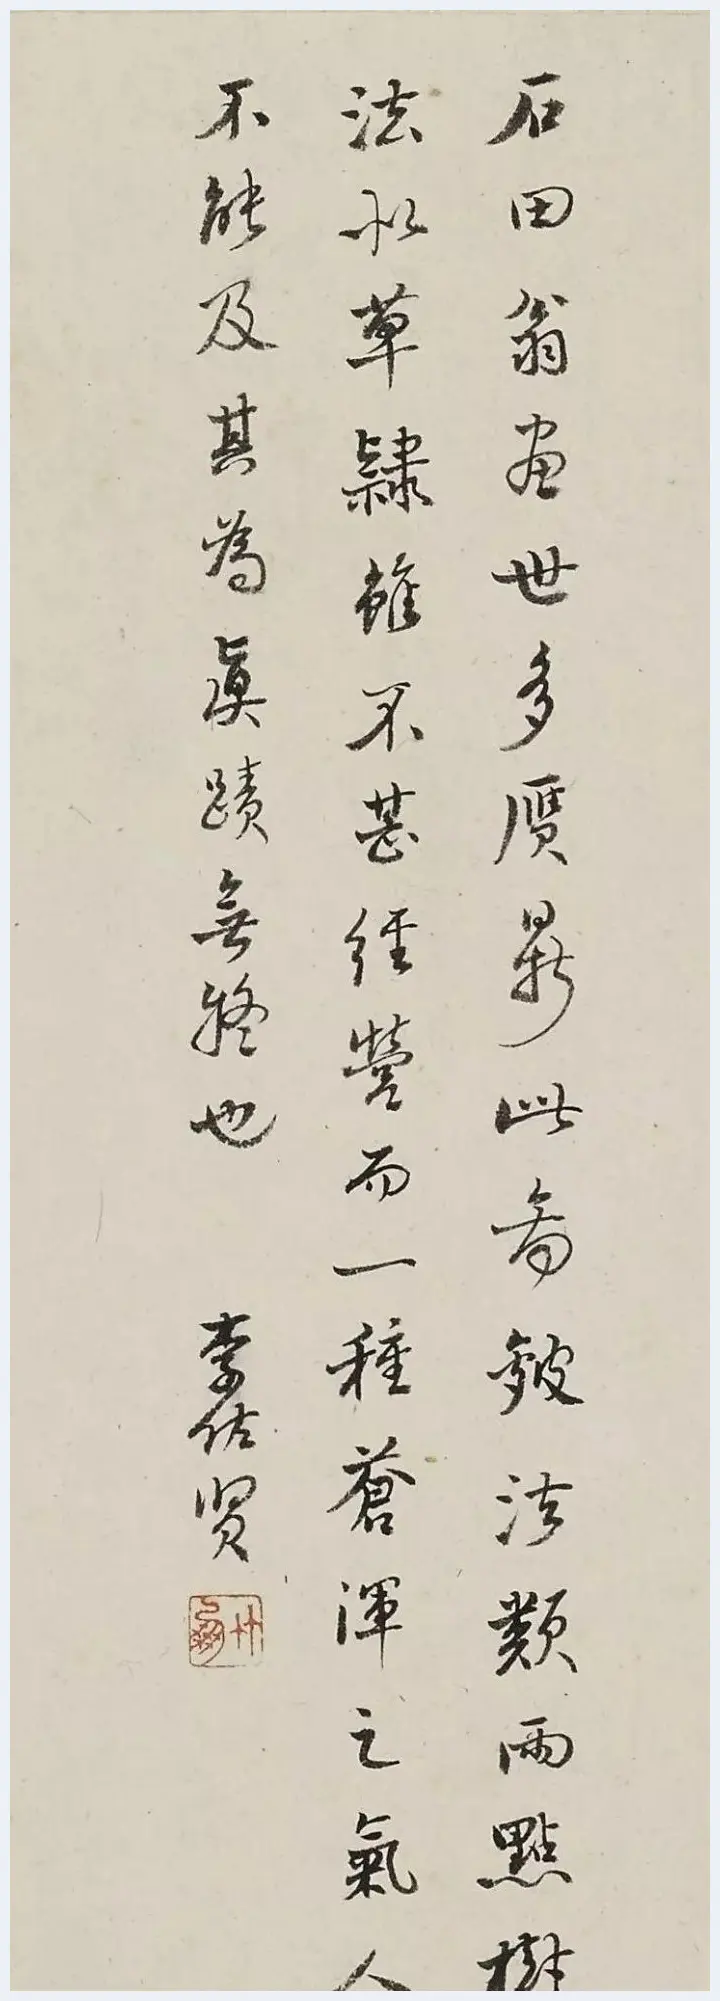 石田翁画世多贗鼎此啚皴法類雨點樹
法似草隸雖不甚經營而一種蒼渾之氣人
不能及其為眞蹟無疑也
李佐贤